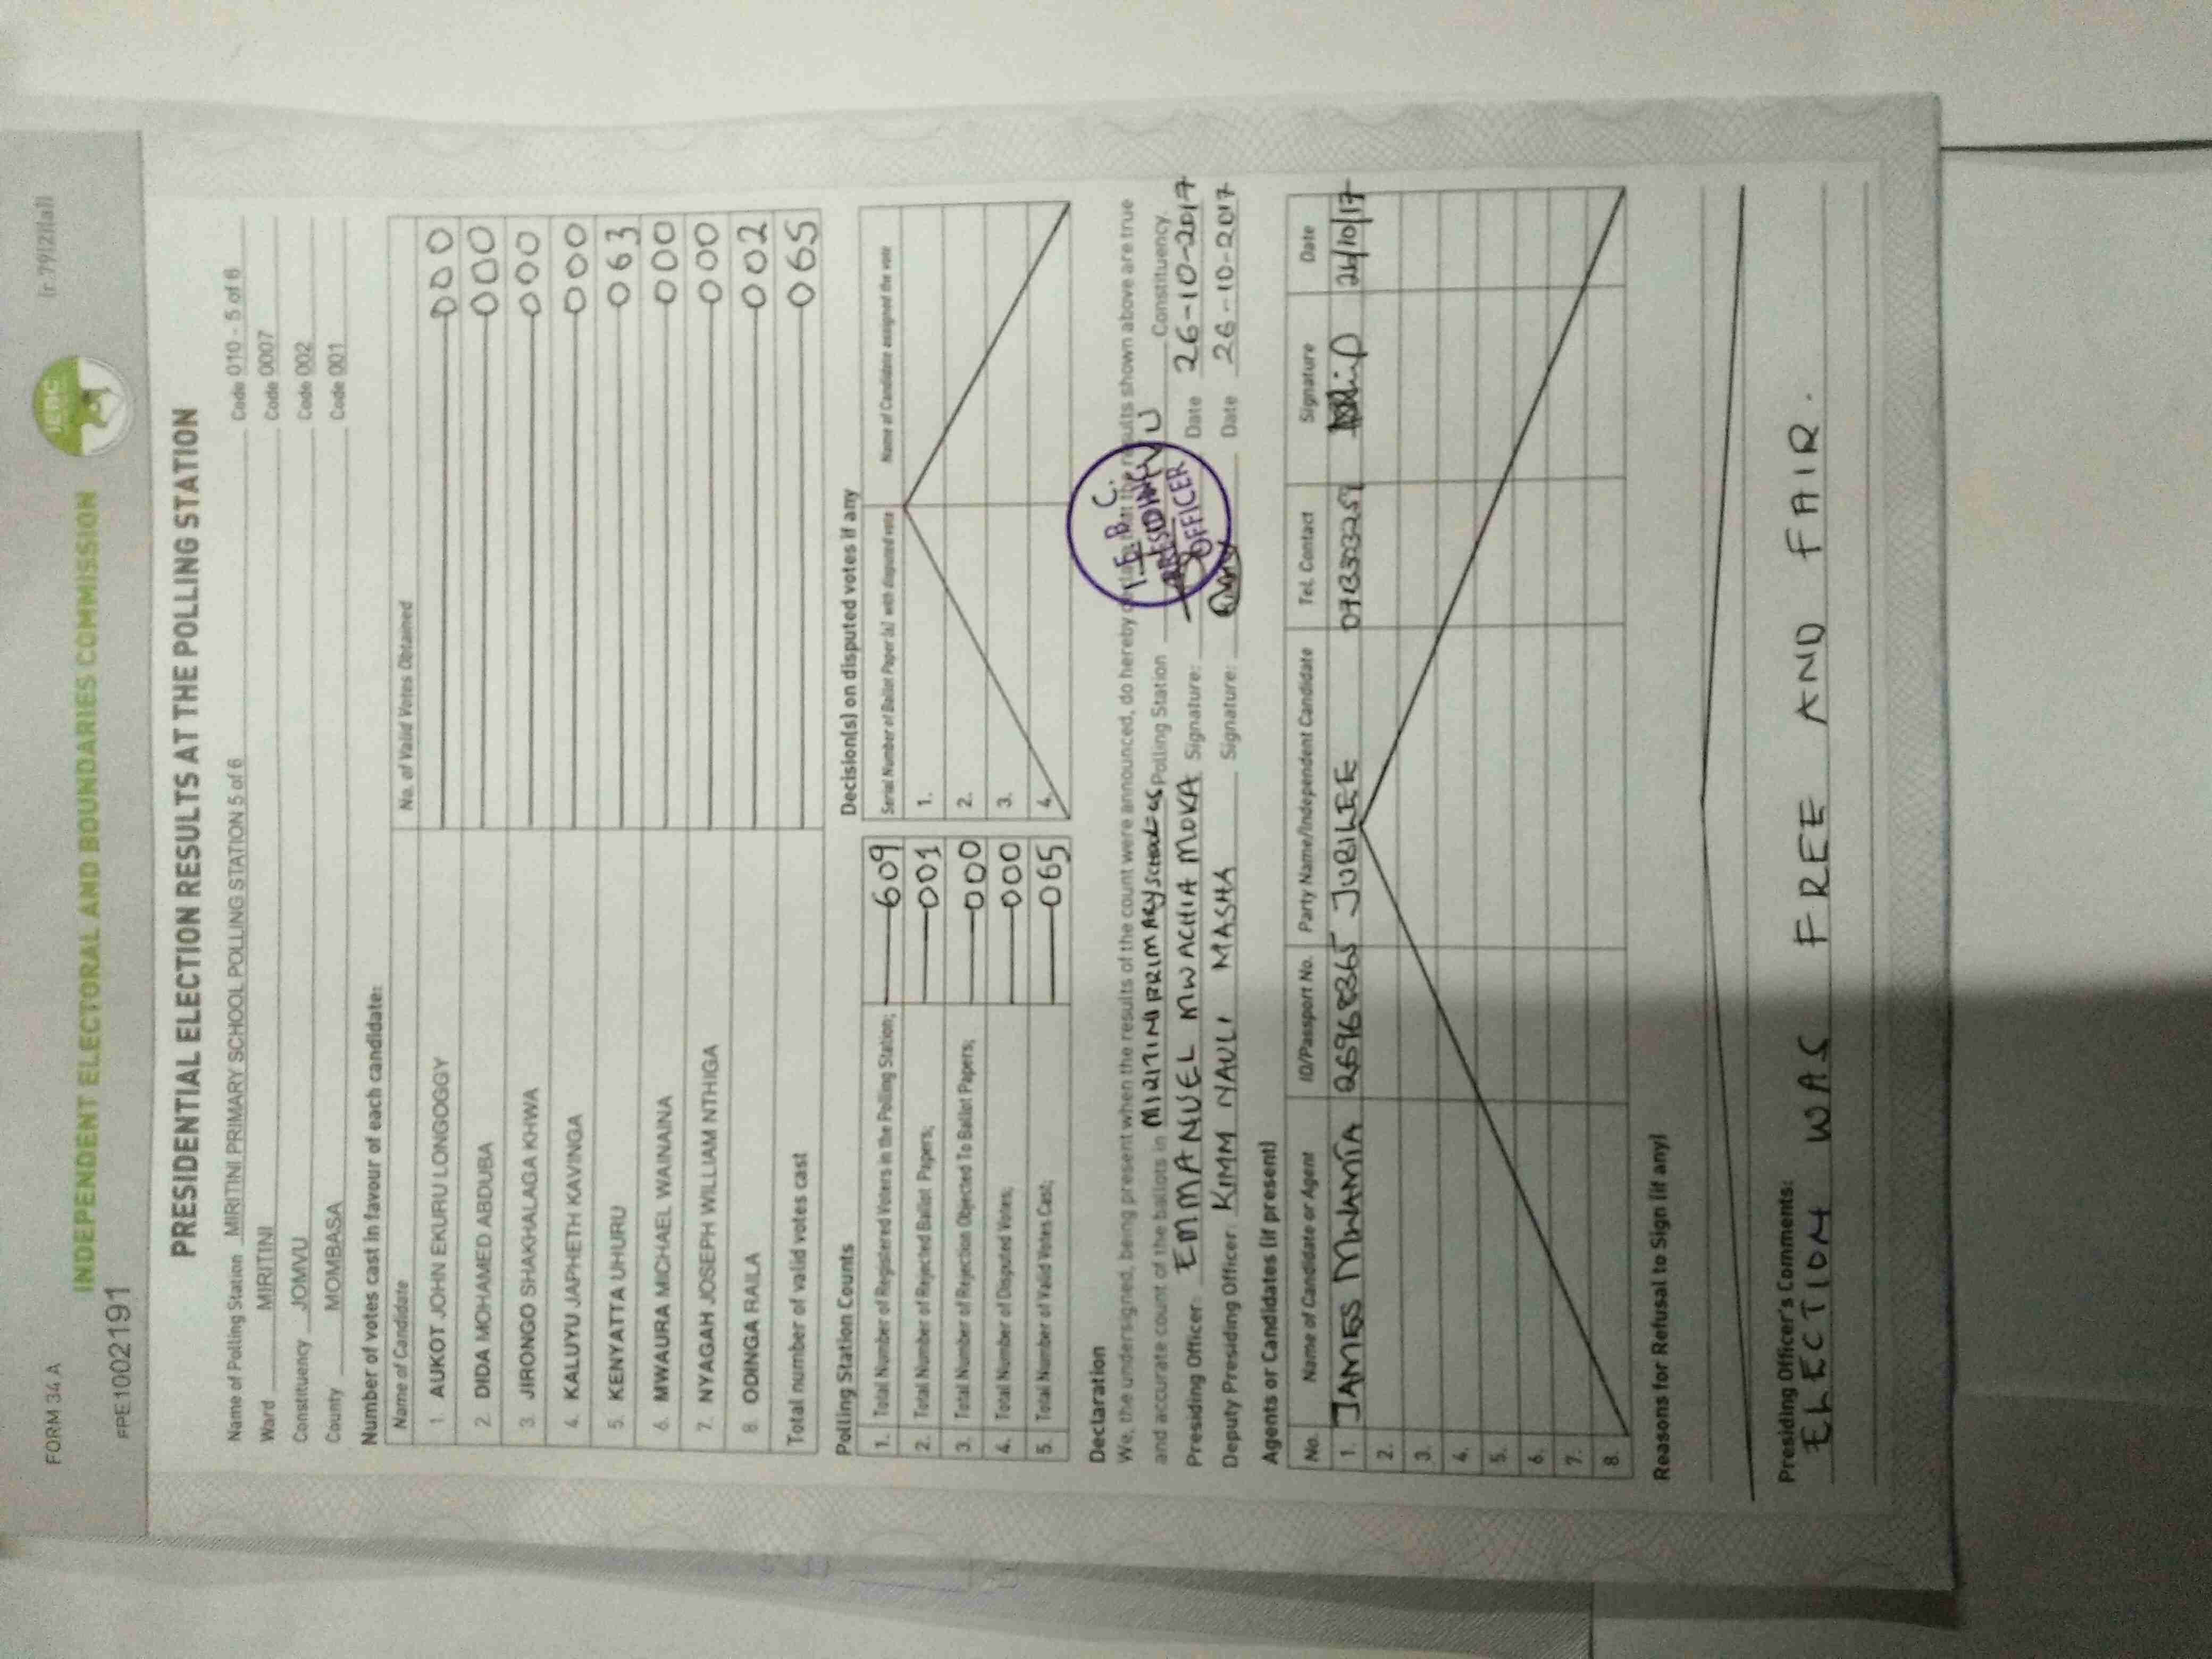 FORM 34 A
(r 79(2)(a))
INDEPENDENT ELECTORAL AND BOUNDARIES COMMISSION
IEBC
PPE1002191
PRESIDENTIAL ELECTION RESULTS AT THE POLLING STATION
Name of Polling Station MIRITINI PRIMARY SCHOOL POLLING STATION 5 of 6 Code 010 - 5 of 6
Ward MIRITINI Code 0007
Constituency JOMVU Code 002
County MOMBASA Code 001
Number of votes cast in favour of each candidate:
Name of Candidate No. of Valid Votes Obtained
1. AUKOT JOHN EKURU LONGOGGY 000
2. DIDA MOHAMED ABDUBA 000
3. JIRONGO SHAKHALAGA KHWA 000
4. KALUYU JAPHETH KAVINGA 000
5. KENYATTA UHURU 063
6. MWAURA MICHAEL WAINAINA 000
7. NYAGAH JOSEPH WILLIAM NTHIGA 000
8. ODINGA RAILA 002
Total number of valid votes cast 065
Polling Station Counts
1. Total Number of Registered Voters in the Polling Station; 609
2. Total Number of Rejected Ballot Papers; 001
3. Total Number of Rejection Objected To Ballot Papers; 000
4. Total Number of Disputed Votes; 000
5. Total Number of Valid Votes Cast; 065
Decision(s) on disputed votes if any
Serial Number of Ballot Paper (s) with disputed vote Name of Candidate assigned the vote
1.
2.
3.
4.
Declaration
We, the undersigned, being present when the results of the count were announced, do hereby declare that the results shown above are true
and accurate count of the ballots in MIRITINI PRIMARY SCHOOL Polling Station Constituency
Presiding Officer: EMMANUEL MWACHIA MOKA Signature: Date 26-10-2017
Deputy Presiding Officer: KIMM NAULI MASHA Signature: Date 26-10-2017
I.E.B.C.
PRESIDING
OFFICER
Agents or Candidates (if present)
No. Name of Candidate or Agent ID/Passport No. Party Name/Independent Candidate Tel. Contact Signature Date
1. JAMES MWAMTA 26968365 JUBILEE
2.
3.
4.
5.
6.
7.
8.
Reasons for Refusal to Sign (if any)
Presiding Officer's Comments:
ELECTION WAS FREE AND FAIR.